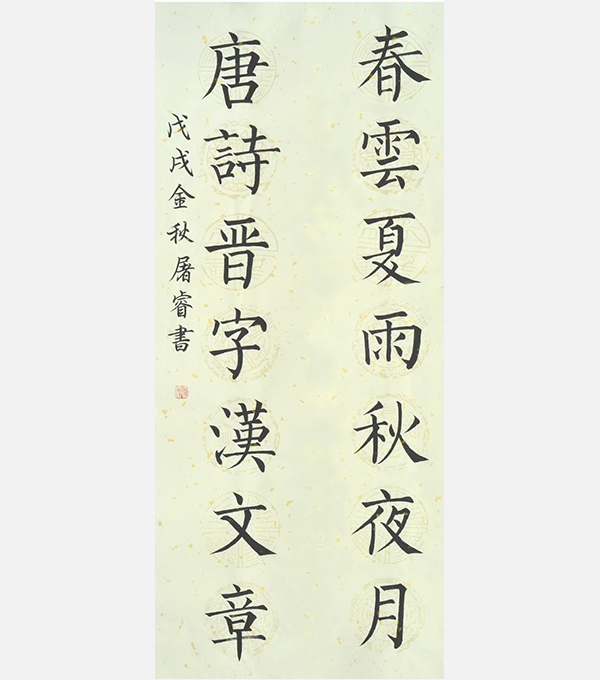 春雲夏雨秋夜月
唐詩晋字漢文章
戊戌金秋屠睿書